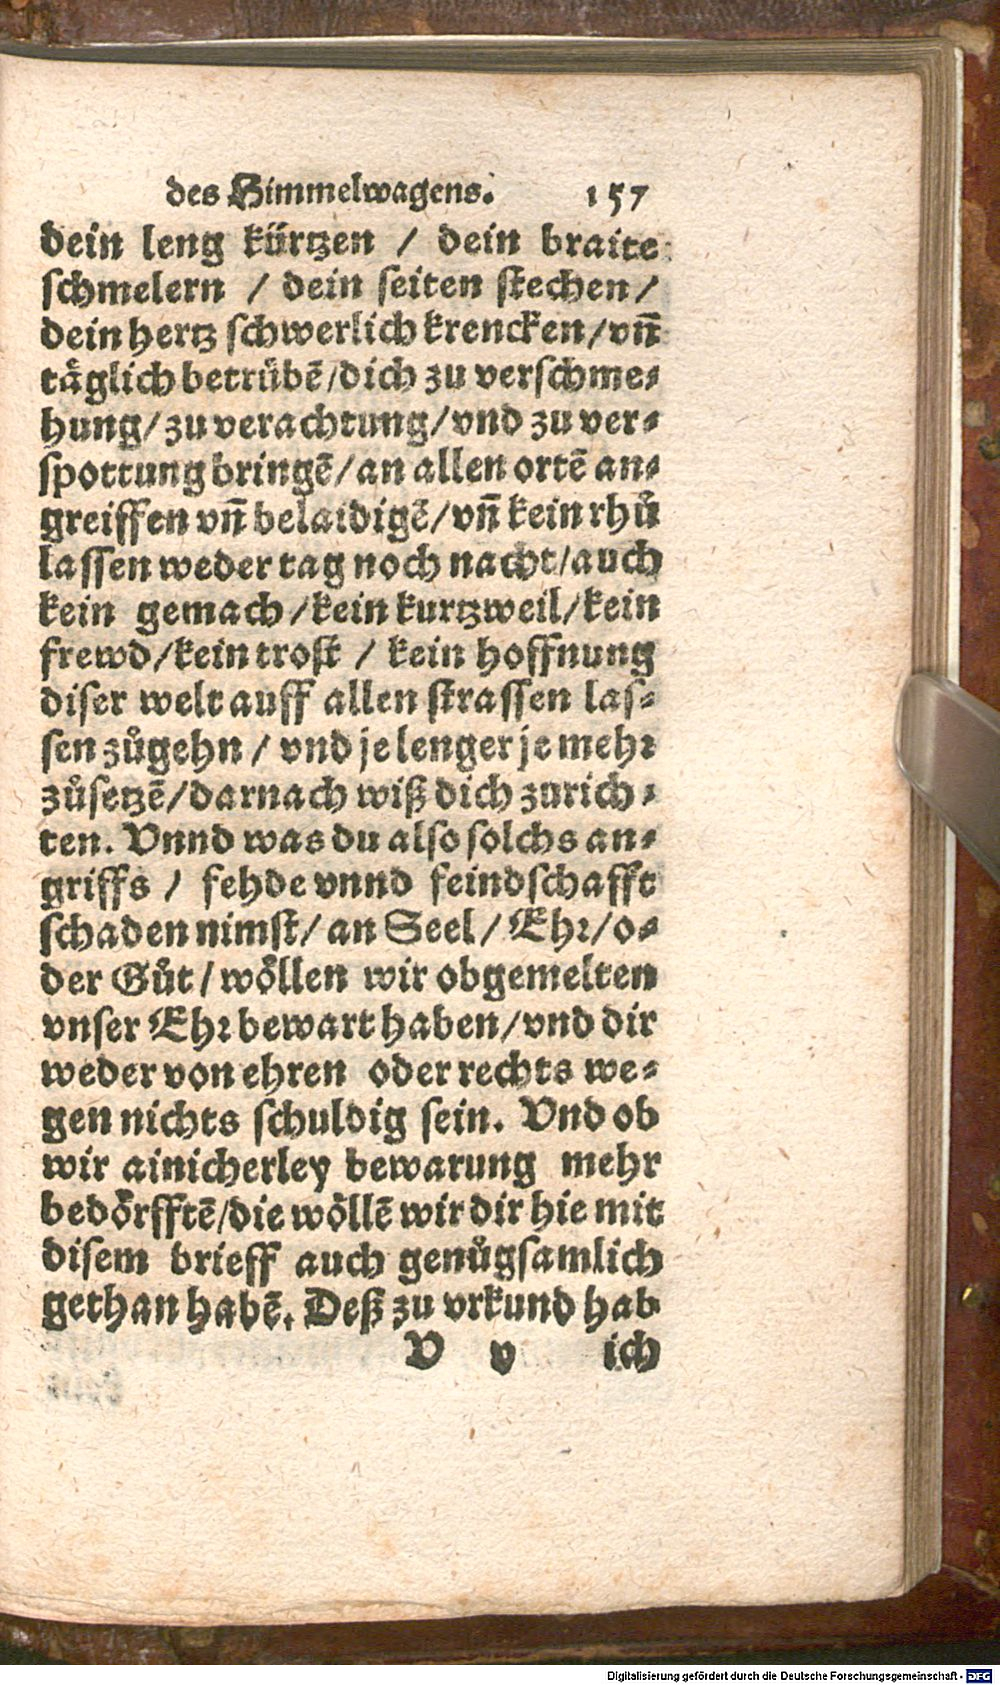 des Himmelwagens. 157
dein leng kürtzen / dein braite
schmelern / dein seiten stechen/
dein hertz schwerlich krencken/vñ
täglich betrübē/dich zu verschme⸗
hung/zu verachtung/vnd zu ver⸗
spottung bringē/an allen ortē an⸗
greiffen vñ belaidigē/vñ kein rhů
lassen weder tag noch nacht/auch
kein gemach/kein kurtzweil/kein
frewd/kein trost / kein hoffnung
diser welt auff allen strassen las⸗
sen zůgehn / vnd je lenger je mehr
zůsetzē/darnach wiß dich zurich⸗
ten. Vnnd was du also solchs an⸗
griffs / fehde vnnd feindschafft
schaden nimst/an Seel/Ehr/o⸗
der Gůt/wöllen wir obgemelten
vnser Ehr bewart haben/vnd dir
weder von ehren oder rechts we⸗
gen nichts schuldig sein. Vnd ob
wir ainicherley bewarung mehr
bedörfftē/die wöllē wir dir hie mit
disem brieff auch genůgsamlich
gethan habē. Deß zu vrkund hab
V v ich
Digitalisierung gefördert durch die Deutsche Forschungsgemeinschaft - DFG